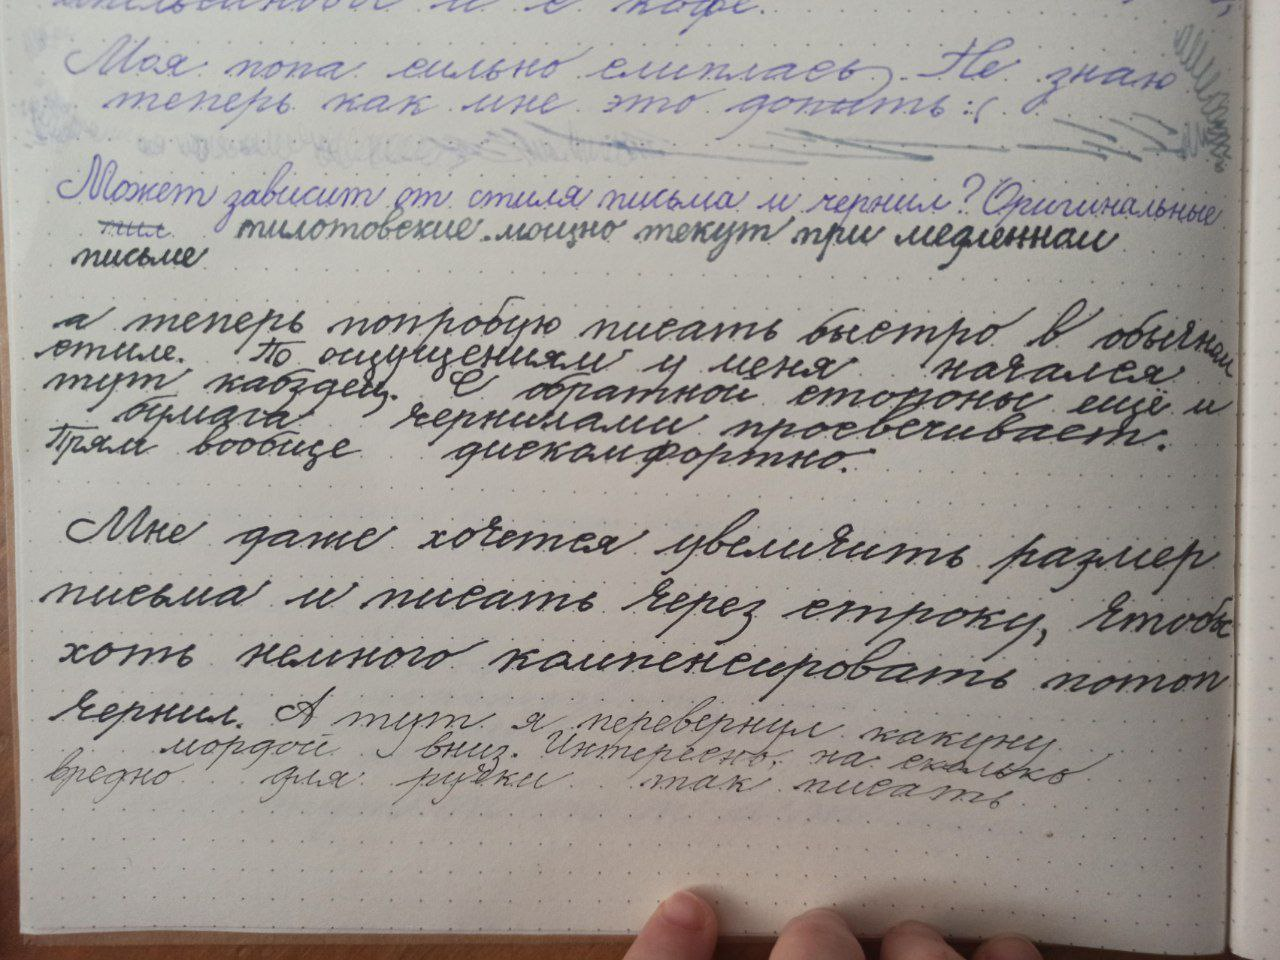 апельсиновой и с кофе.
Моя попа сильно слиплась. Не знаю
теперь как мне это допить :(
Может зависит от стиля письма и чернил? Оригинальные
пил пилотовские мощно текут при медленном
письме
а теперь попробую писать быстро в обычном
стиле. По ощущениям у меня начался
тут кабздец. С обратной стороны ещё и
бумага чернилами просвечивает.
Прям вообще дискомфортно.
Мне даже хочется увеличить размер
письма и писать через строку, чтобы
хоть немного компенсировать потоп
чернил. А тут я перевернул какуну
мордой вниз. Интересно, на сколько
вредно для ручки так писать